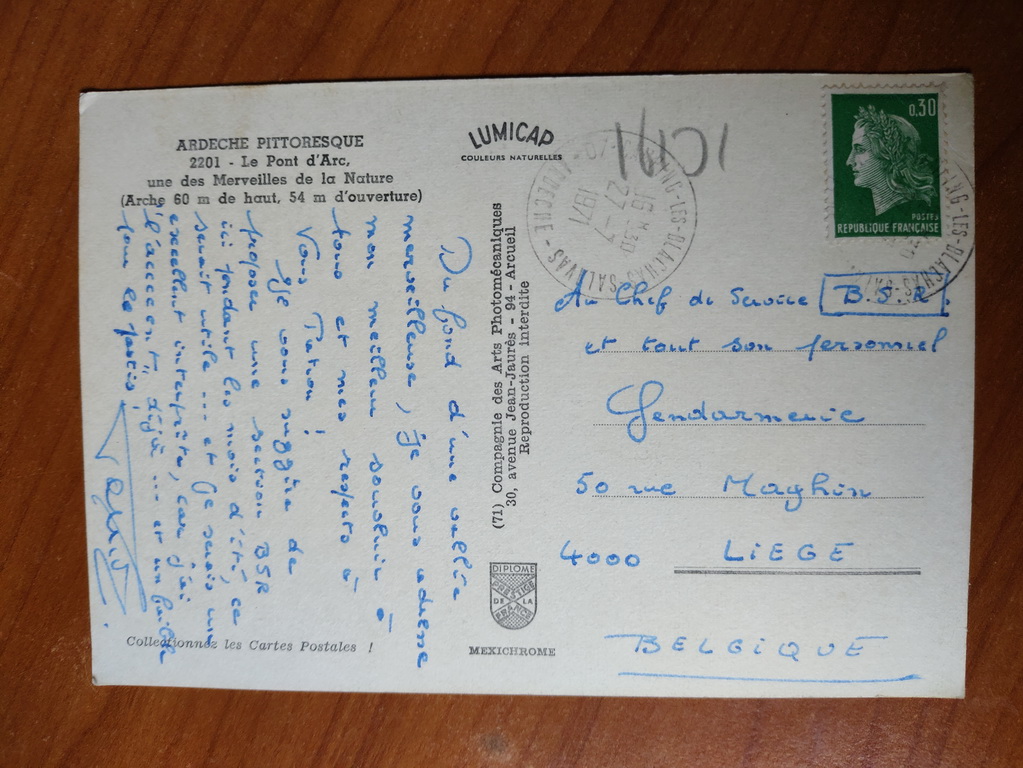 ARDECHE PITTORESQUE
2201 - Le Pont d'Arc,
une des Merveilles de la Nature
(Arche 60 m de haut, 54 m d'ouverture)
LUMICAP
COULEURS NATURELLES
Du fond d'une vallée
merveilleuse, je vous adresse
mon meilleur souvenir à
tous et mes respects à
Vous Patron!
Je vous suggère de
proposer une section BSR
ici pendant les mois d'été, ça
serait utile ... et je serais un
excellent interprète, car j'ai
l'accent "déjà ... et un
pour le pastis!
Collectionnez les Cartes Postales !
(71) Compagnie des Arts Photomécaniques
30, avenue Jean-Jaurès - 94 - Arcueil
Reproduction interdite
DIPLOME
PRESTIGE
DE LA
FRANCE
MEXICHROME
1/101
07
LES-BLACHAS-SALAVAS
ARDECHE
16 H 30
27 - 7
1971
0,30
POSTES
REPUBLIQUE FRANÇAISE
Au Chef de Service B.S.R.
et tout son personnel
Gendarmerie
50 rue Maghin
4000 LIEGE
BELGIQUE